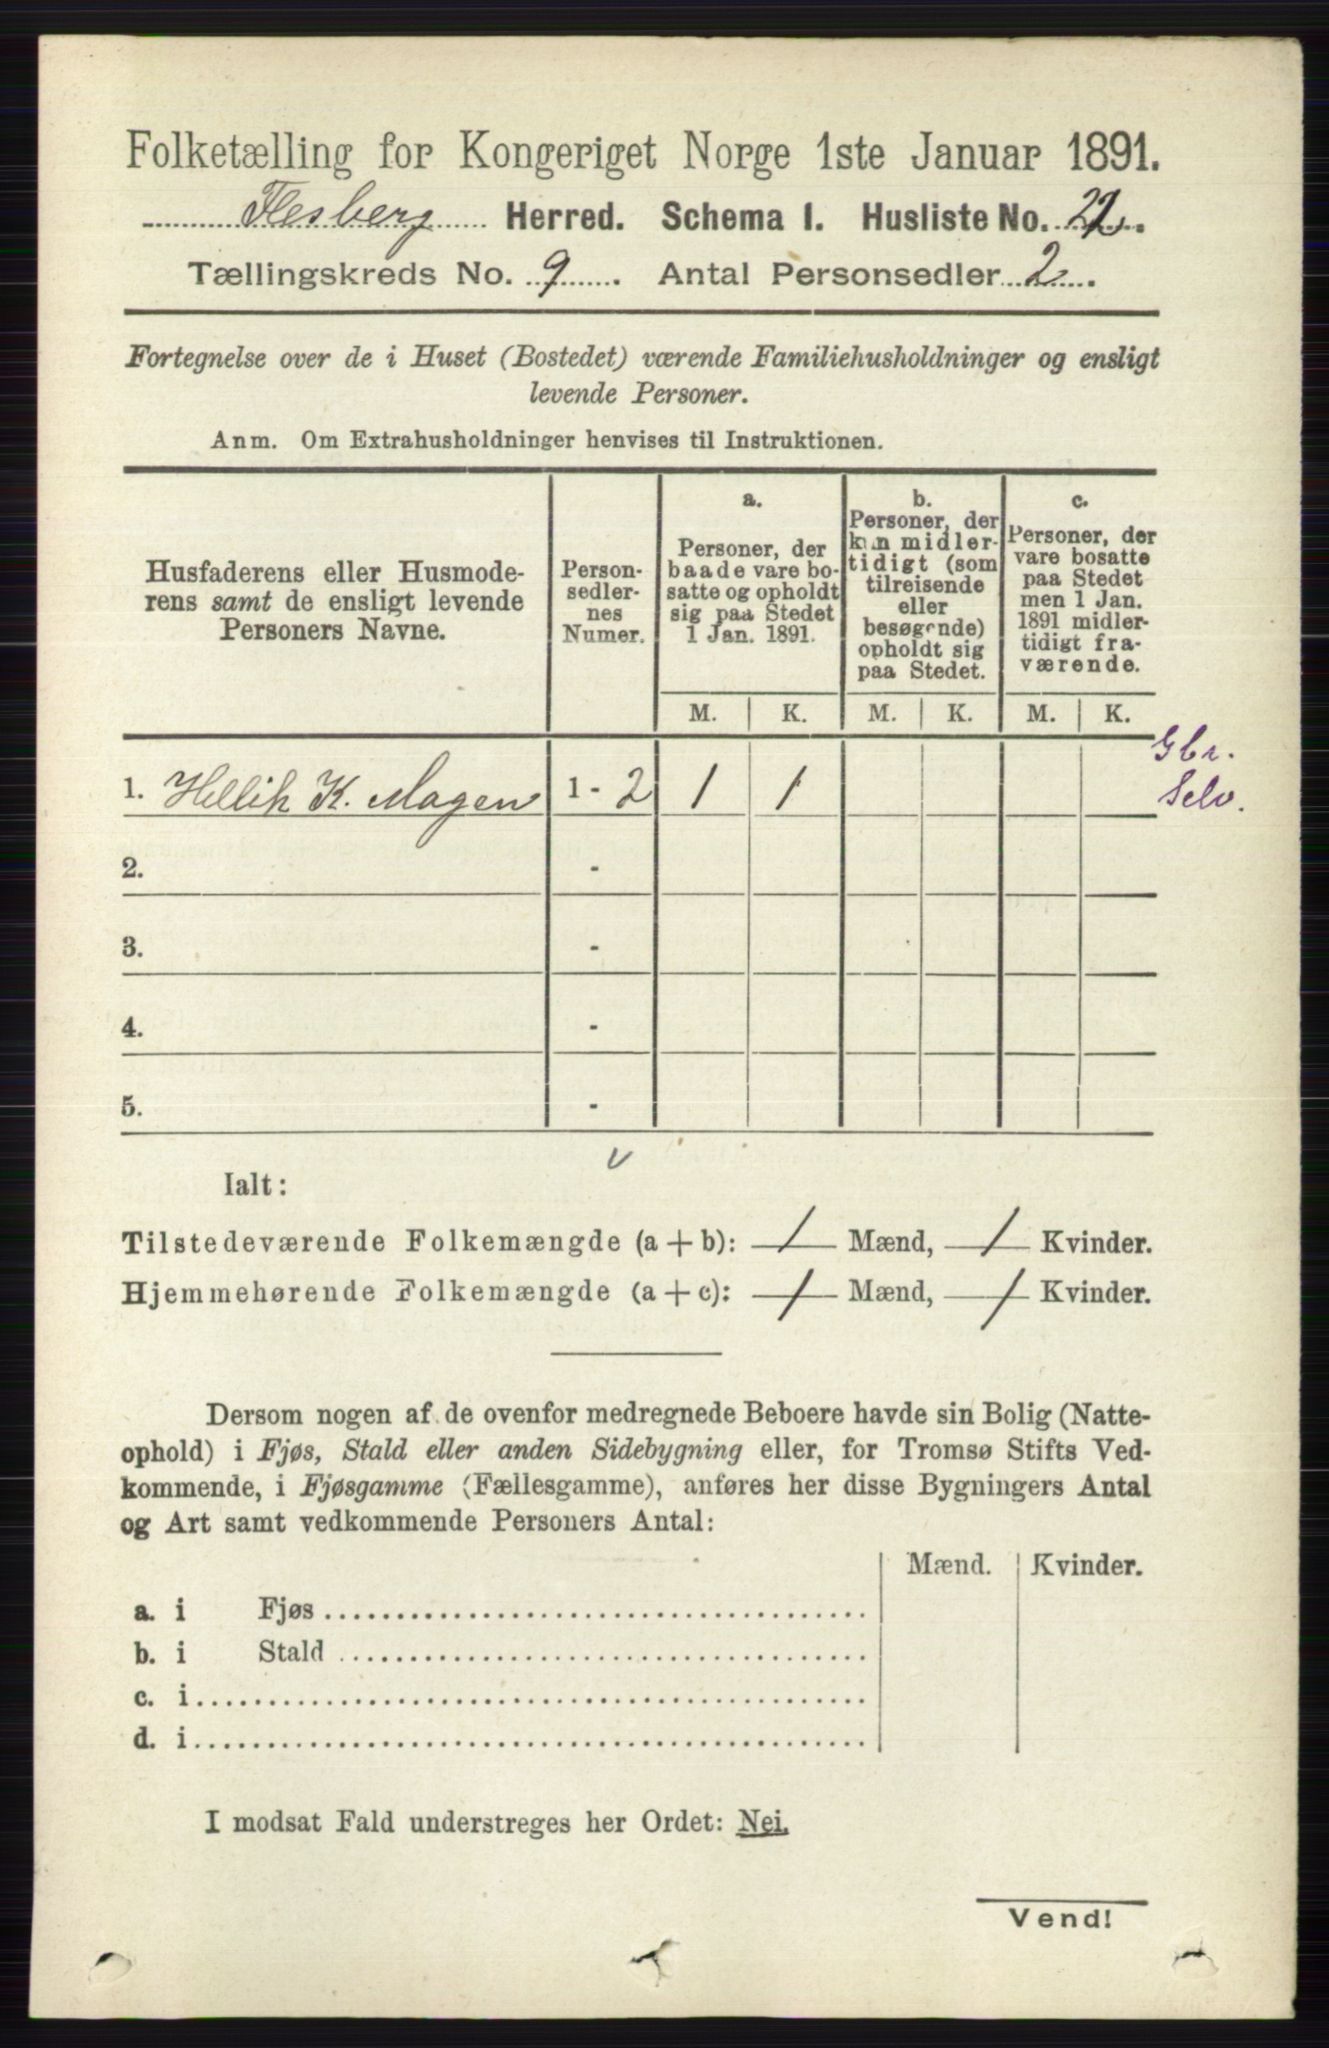 Folketælling for Kongeriget Norge 1ste Januar 1891.
Flesberg Herred. Schema I. Husliste No. 22.
Tællingskreds No. 9. Antal Personsedler 2.
Fortegnelse over de i Huset (Bostedet) værende Familiehusholdninger og ensligt
levende Personer.
Anm. Om Extrahusholdninger henvises til Instruktionen.
Husfaderens eller Husmode-
rens samt de ensligt levende
Personers Navne.
Person-
sedler-
nes
Numer.
a.
Personer, der
baade vare bo-
satte og opholdt
sig paa Stedet
1 Jan. 1891.
b.
Personer, der
kun midler-
tidigt (som
tilreisende
eller
besøgende)
opholdt sig
paa Stedet.
c.
Personer, der
vare bosatte
paa Stedet
men 1 Jan.
1891 midler-
tidigt fra-
værende.
M. K. M. K. M. K.
Gbr.
1. Hellik K. Magen 1 - 2 1 1 Selv.
2. -
3. -
4. -
5. -
Ialt:
Tilstedeværende Folkemængde (a + b): 1 Mænd, 1 Kvinder.
Hjemmehørende Folkemængde (a + c): 1 Mænd, 1 Kvinder.
Dersom nogen af de ovenfor medregnede Beboere havde sin Bolig (Natte-
ophold) i Fjøs, Stald eller anden Sidebygning eller, for Tromsø Stifts Ved-
kommende, i Fjøsgamme (Fællesgamme), anføres her disse Bygningers Antal
og Art samt vedkommende Personers Antal:
Mænd. Kvinder.
a. i Fjøs
b. i Stald
c. i
d. i
I modsat Fald understreges her Ordet: Nei.
Vend!